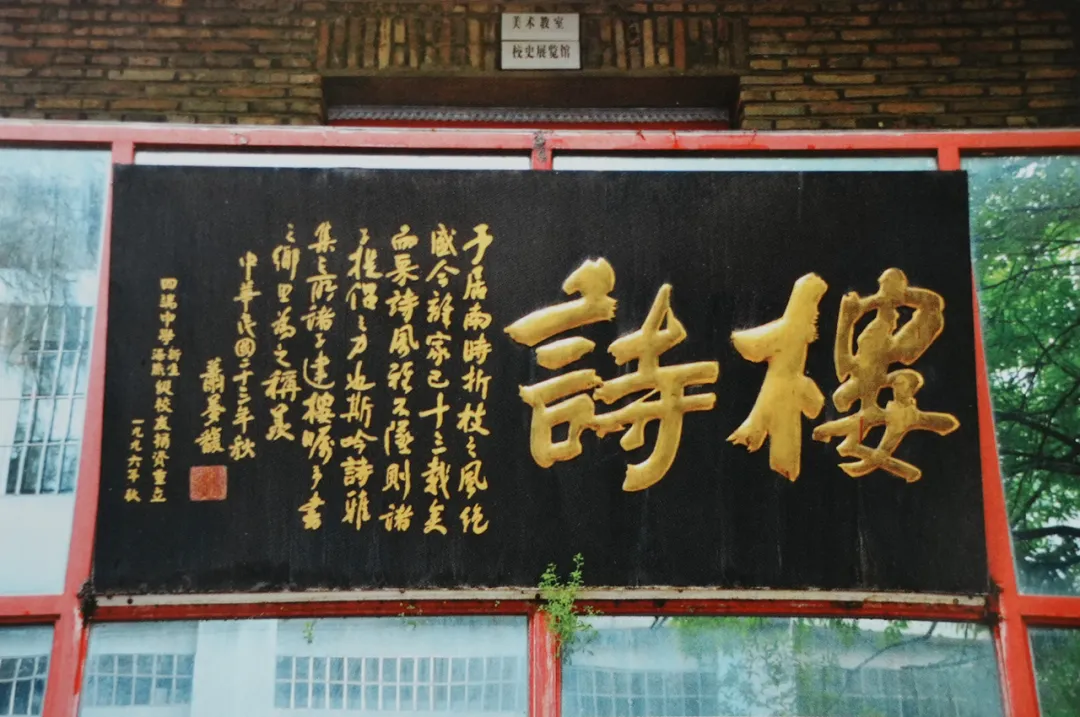 美术教室
校史展览馆
詩樓
予居時折枝之風絶
盛今辭家已十三載矣
而慕詩風不墜則諸
子提倡之力也斯吟詩雅
集之所諸子建樓囑予書
之鄉里為之稱羡
中華民國二十三年秋
蕭夢馥
中學新生海燕級校友捐資重立
一九九六年秋